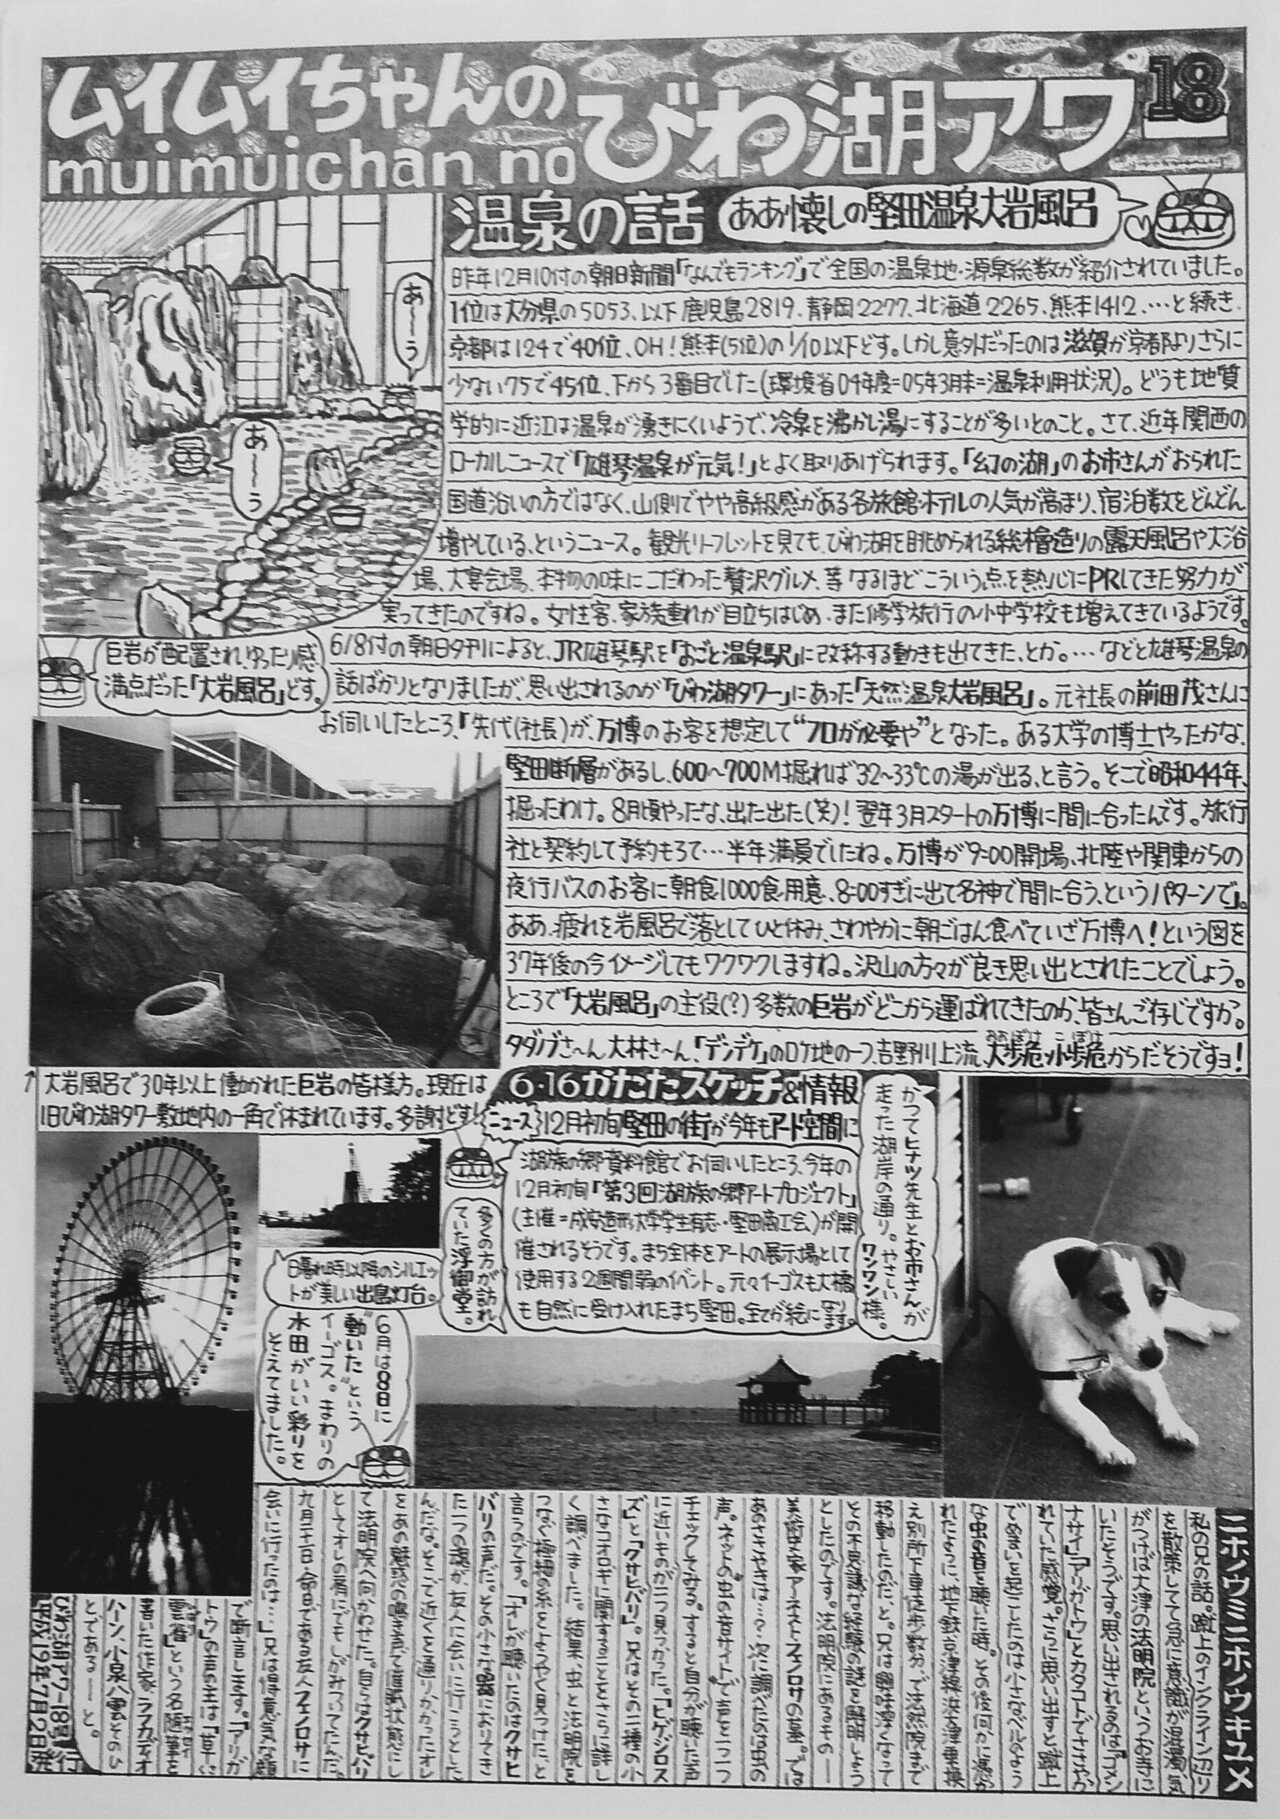 ムイムイちゃんの
びわ湖アワー
18
muimuichan no
温泉の話
ああ懐しの堅田温泉大岩風呂
昨年12月10付の朝日新聞「なんでもランキング」で全国の温泉地・源泉総数が紹介されていました。
1位は大分県の5053、以下鹿児島2819、静岡2277、北海道2265、熊本1412、…と続き、
京都は124で40位、OH!熊本(5位)の1/10以下どす。しかし意外だったのは滋賀が京都よりさらに
少ない75で45位、下から3番目でした(環境省04年度=05年3月末=温泉利用状況)。どうも地質
学的に近江は温泉が湧きにくいようで、冷泉を沸かし湯にすることが多いとのこと。さて、近年関西の
ローカルニュースで「雄琴温泉が元気!」とよく取りあげられます。「幻の湖」のお市さんがおられた
国道沿いの方ではなく、山側でやや高級感がある名旅館・ホテルの人気が高まり、宿泊数をどんどん
増やしている、というニュース。観光リーフレットを見ても、びわ湖を眺められる総檜造りの露天風呂や大浴
場、大宴会場、本物の味にこだわった贅沢グルメ、等なるほどこういう点を熱心にPRしてきた努力が
実ってきたのですね。女性客、家族連れが目立ちはじめ、また修学旅行の小中学校も増えてきているようです。
6/8付の朝日夕刊によると、JR雄琴駅を「おごと温泉駅」に改称する動きも出てきた、とか。…などと雄琴温泉の
話ばかりとなりましたが、思い出されるのが「びわ湖タワー」にあった「天然温泉大岩風呂」。元社長の前田茂さんに
お伺いしたところ、「先代(社長)が、万博のお客を想定して“フロが必要や”となった。ある大学の博士やったかな、
堅田断層があるし、600〜700M掘れば32〜33℃の湯が出る、と言う。そこで昭和44年、
掘ったわけ。8月頃やったな、出た出た(笑)!翌年3月スタートの万博に間に合ったんです。旅行
社と契約して予約もろて…半年満員でしたね。万博が9:00開場、北陸や関東からの
夜行バスのお客に朝食1000食用意、8:00すぎに出て名神で間に合う、というパターンで」。
ああ、疲れを岩風呂で落としてひと休み、さわやかに朝ごはん食べていざ万博へ!という図を
37年後の今イメージしてもワクワクしますね。沢山の方々が良き思い出とされたことでしょう。
ところで「大岩風呂」の主役(?)多数の巨岩がどこから運ばれてきたのか、皆さんご存じですか?
タダノブさ〜ん、大林さ〜ん、「デンデケ」のロケ地の一つ、吉野川上流、大歩危小歩危からだそうですョ!
おおぼけ こぼけ
あ〜〜う
あ〜〜う
巨岩が配置され、ゆったり感
満点だった「大岩風呂」どす。
↑大岩風呂で30年以上働かれた巨岩の皆様方。現在は
旧びわ湖タワー敷地内の一角で休まれています。多謝どす!
6・16かたたスケッチ&情報
ニュース
12月初旬堅田の街が今年もアート空間に
湖族の郷資料館でお伺いしたところ、今年の
12月初旬「第3回湖族の郷アートプロジェクト」
(主催=成安造形大学学生有志・堅田商工会)が開
催されるそうです。まち全体をアートの展示場として
使用する2週間弱のイベント。元々イーゴスも大橋
も自然に受け入れたまち堅田。全てが絵になります。
かつてヒナツ先生とお市さんが
走った湖岸の通り。やさしい
ワンワン様。
多くの方が訪れ
ていた浮御堂。
日暮れ時以降のシルエッ
トが美しい出島灯台。
6月は8日に
“動いた”という
イーゴス。まわりの
水田がいい彩りを
そえてました。
ニホノウミニホノウキユメ
私の兄の話。蹴上のインクライン辺り
を散策してて急に意識が混濁、気
がつけば大津の法明院というお寺に
いたそうです。思い出されるのは「ゴメン
ナサイ」「アリガトウ」とカタコトでささやか
れていた感覚。さらに思い出すと蹴上
でめまいを起こしたのは小さなベルのよう
な虫の音を聴いた時。その後何かに操
れたように、地下鉄京津線浜大津乗換
え別所下車徒歩数分で法明院まで
移動したのだ、と。兄は興味深くなって
その不思議な経験の謎を解明しよう
としたのです。法明院にあるもの—
美術家アーネスト・フェノロサの墓。では
あのささやきは…?次に調べたのは虫の
声。ネットの虫の音サイトで声を一つ一つ
チェックしてみる。すると自分が聴いた声
に近いものが二つ見つかった。「ヒゲシロス
ズ」と「クサヒバリ」。兄はその二種の小
さなコオロギに関することをさらに詳し
く調べました。結果、虫と法明院を
つなぐ極細の糸をようやく見つけた、と
言うのです。「オレが聴いたのはクサヒ
バリの声だ。その小さな器におりてき
た一つの魂が、友人に会いに行こうとした
んだな。そこで近くを通りかかったオレ
をあの魅惑の鳴き声で催眠状態にし
て法明院へ向かわせた。自らはクサヒバリ
としてオレの肩にでもしがみついてたんだ。
九月二十一日、命日である友人フェノロサに
会いに行ったのは…」兄は得意気な顔
で断言します。「『アリガ
トウ』の声の主は『草ひ
雲雀』という名随筆を
著いた作家ラフカディオ・
ハーン、小泉八雲そのひ
とである——」と。
びわ湖アワー18号
平成19年7月2日発行